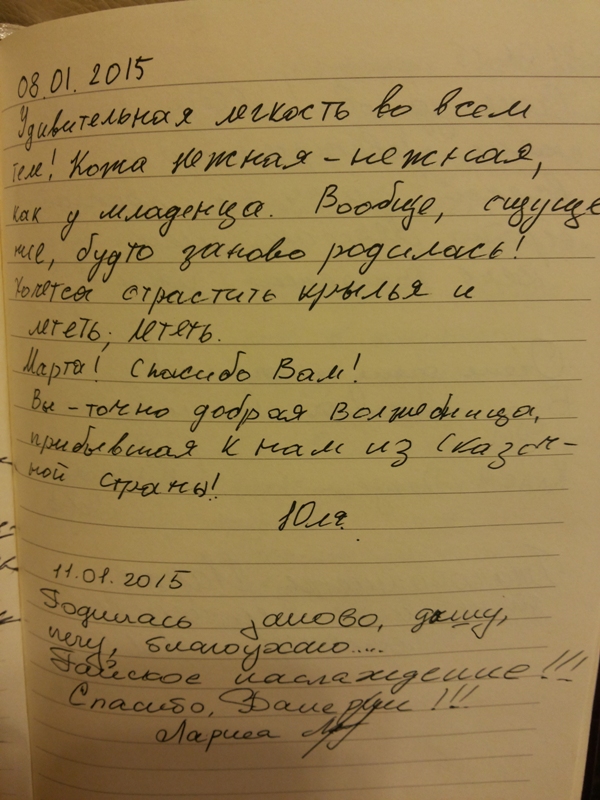 08.01.2015
Удивительная легкость во всем
теле! Кожа нежная-нежная,
как у младенца. Вообще, ощуще
ние, будто заново родилась!
Хочется отрастить крылья и
лететь, лететь.
Марта! Спасибо Вам!
Вы-точно добрая Волшебница,
прибывшая к нам из Сказоч-
ной страны!
Юля.
11.01.2015
Родилась заново, дышу,
лечу, благоухаю.....
Райское наслаждение!!!
Спасибо, !!!
Лариса